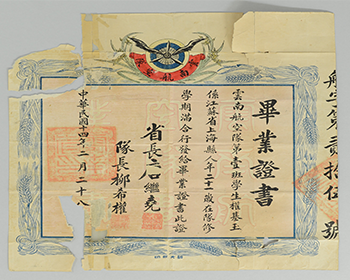 航字第貳拾伍號
畢業證書
雲南航空隊第壹班學生權基玉
係江蘇省上海縣人年二十一歲在隊修
學期滿合行發給畢業證書此證
省長唐繼堯
隊長柳希權
中華民國十四年二月二十八